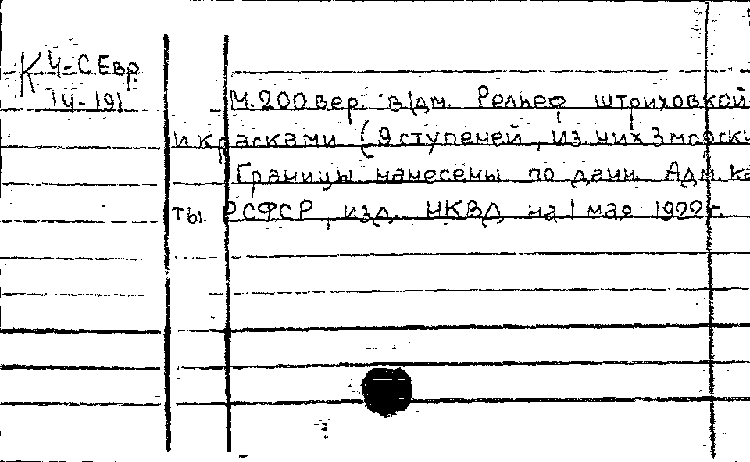 К 4-С Евр.
14-191
М. 200 вер. в/дм. Рельеф штриховкой
и красками (9 ступеней, из них 3 морски
Границы нанесены по данн. Адм. ка
ты РСФСР, изд. НКВД на 1 мая 1922 г.